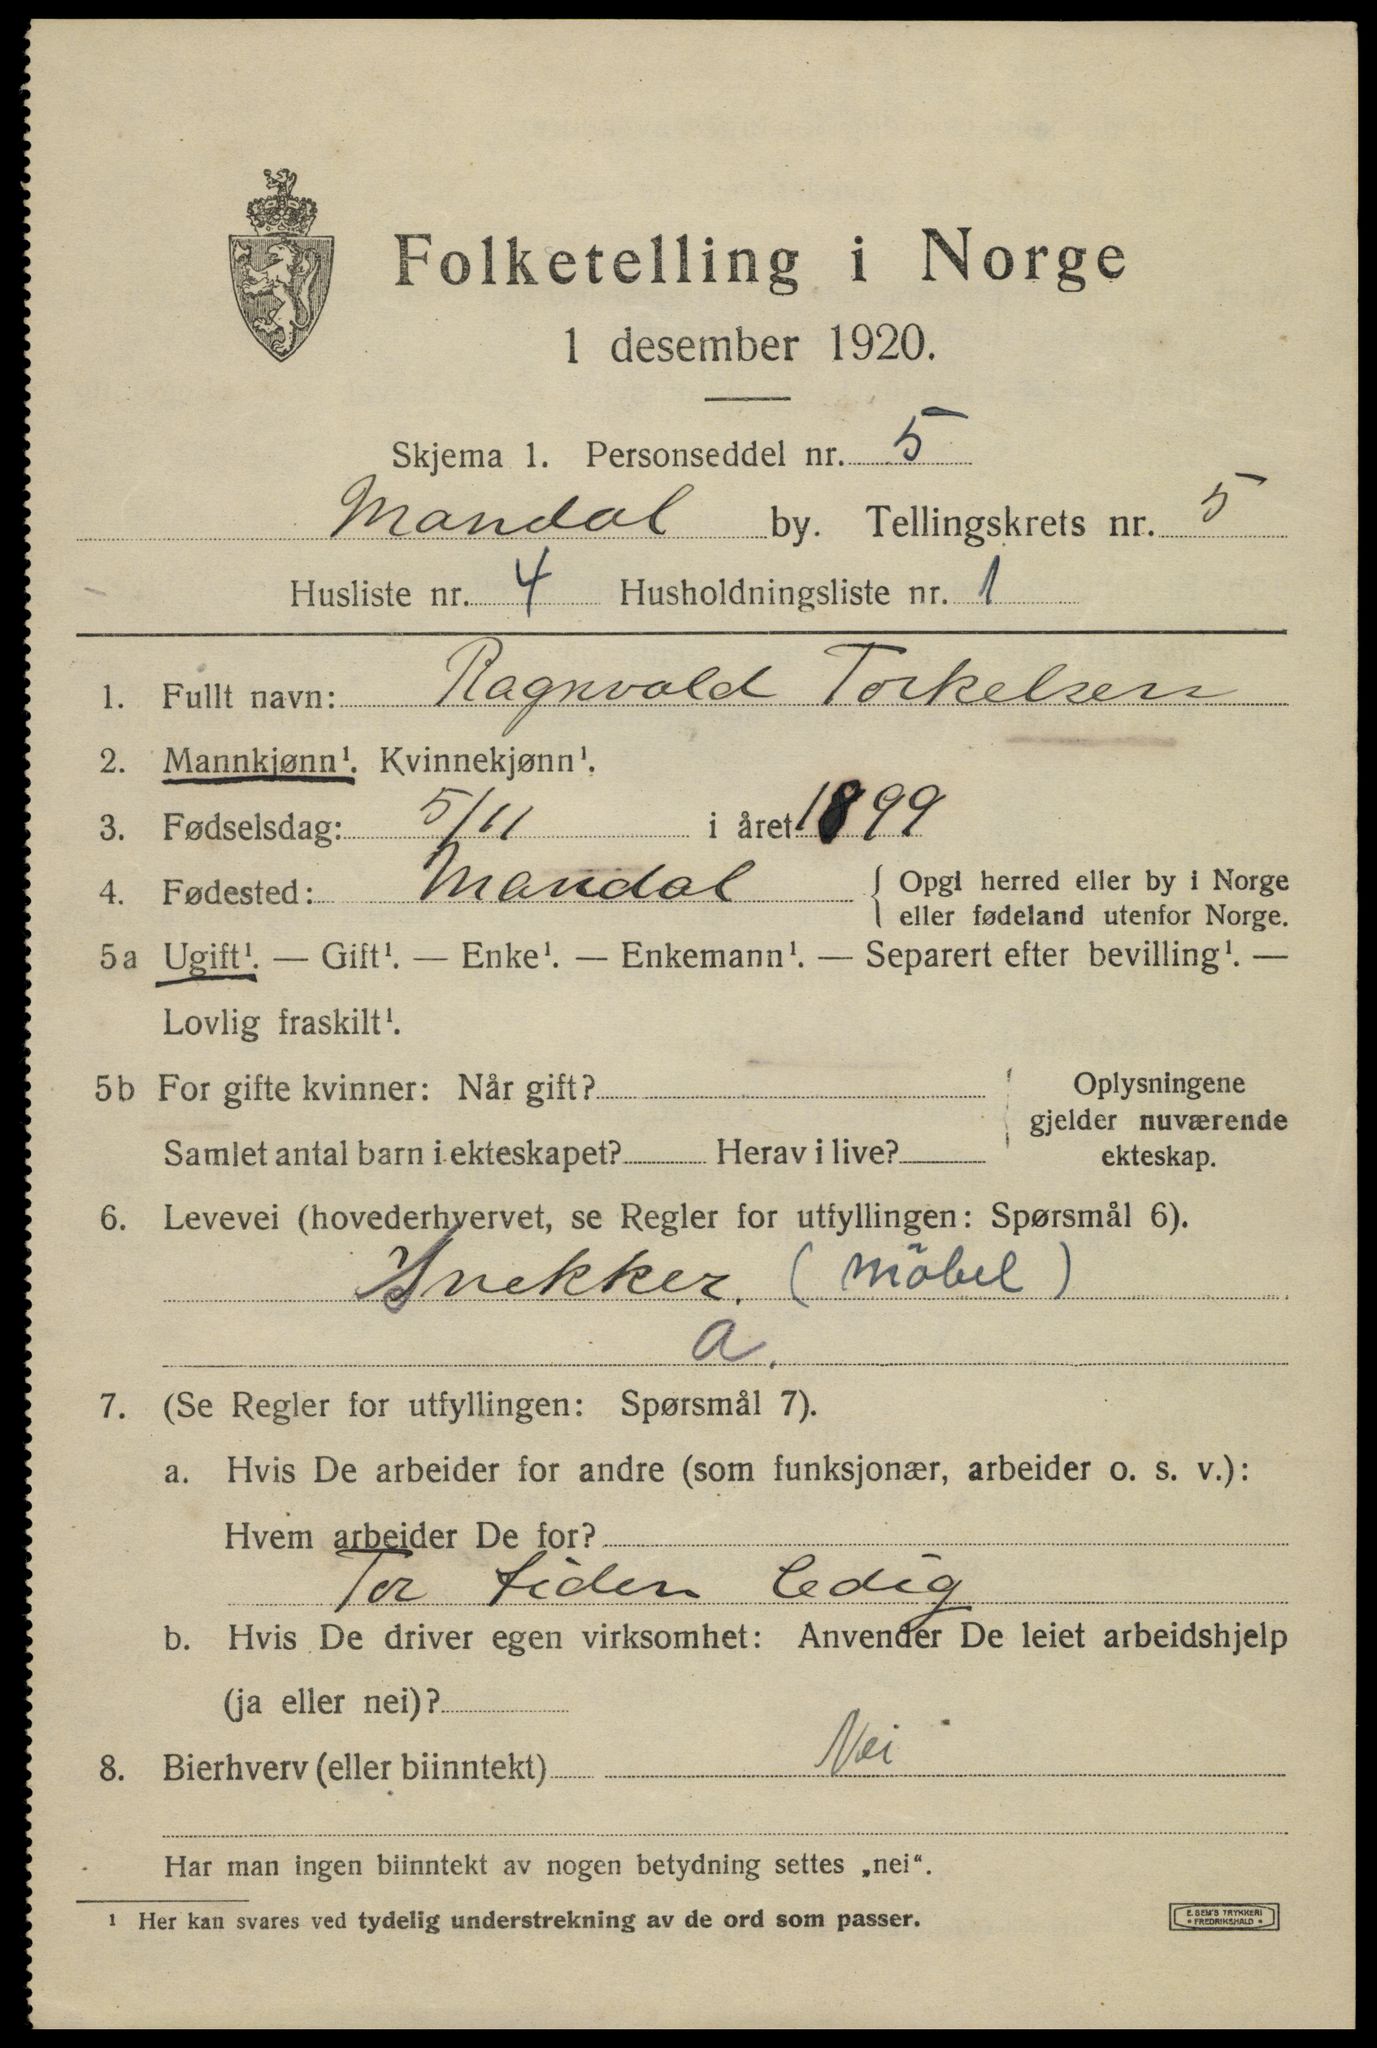 Folketelling i Norge
1 desember 1920.
Skjema 1. Personseddel nr. 5
Mandal by. Tellingskrets nr. 5
Husliste nr. 4 Husholdningsliste nr. 1
1. Fullt navn: Ragnvald Torkelsen
2. Mannkjønn¹. Kvinnekjønn¹.
3. Fødselsdag: 5/11 i året 1899
4. Fødested: Mandal { Opgi herred eller by i Norge
eller fødeland utenfor Norge.
5a Ugift¹. — Gift¹. — Enke¹. — Enkemann¹. — Separert efter bevilling¹. —
Lovlig fraskilt¹.
5b For gifte kvinner: Når gift? Oplysningene
gjelder nuværende
Samlet antal barn i ekteskapet? Herav i live? ekteskap.
6. Levevei (hovederhvervet, se Regler for utfyllingen: Spørsmål 6).
Snekker. (Möbel)
a.
7. (Se Regler for utfyllingen: Spørsmål 7).
a. Hvis De arbeider for andre (som funksjonær, arbeider o. s. v.):
Hvem arbeider De for?
For tiden ledig
b. Hvis De driver egen virksomhet: Anvender De leiet arbeidshjelp
(ja eller nei)?
8. Bierhverv (eller biinntekt) Nei
Har man ingen biinntekt av nogen betydning settes „nei“.
¹ Her kan svares ved tydelig understrekning av de ord som passer.
E. SEM'S TRYKKERI
• FREDRIKSHALD •